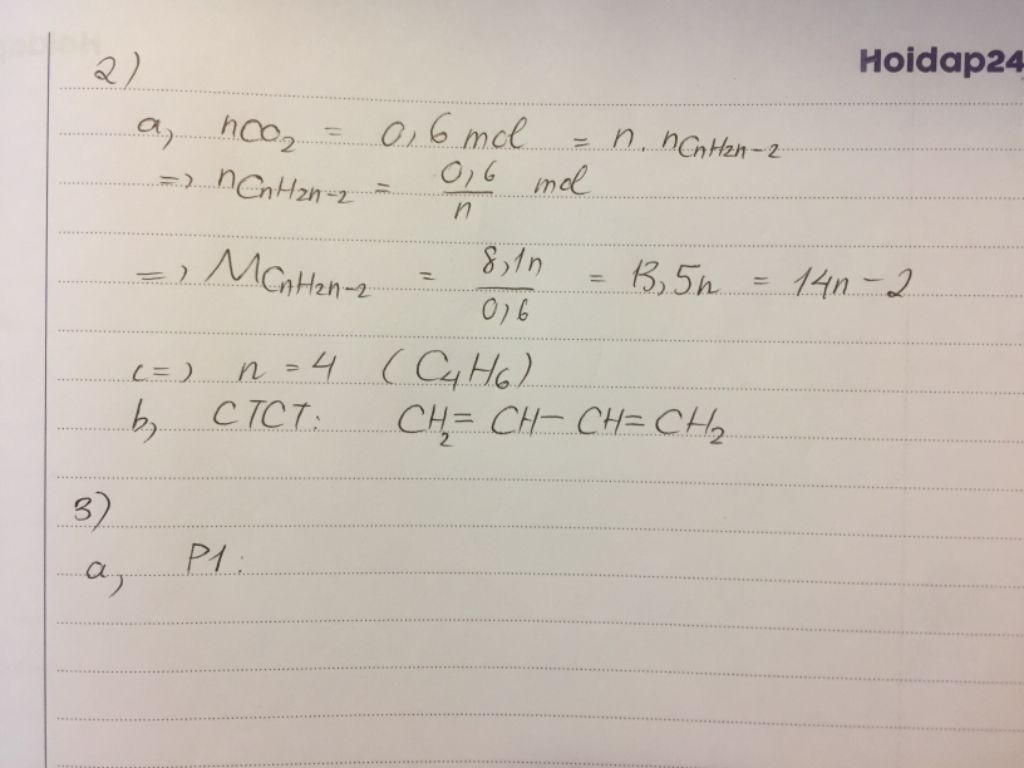 Hoidap24
2)
a, nCO₂ = 0,6 mol = n. nCnH2n-2
=> nCnH2n-2 = 0,6/n mol
=> MCnH2n-2 = 8,1n/0,6 = 13,5n = 14n - 2
<=> n = 4 (C₄H₆)
b, CTCT: CH₂= CH- CH= CH₂
3)
a, P1: